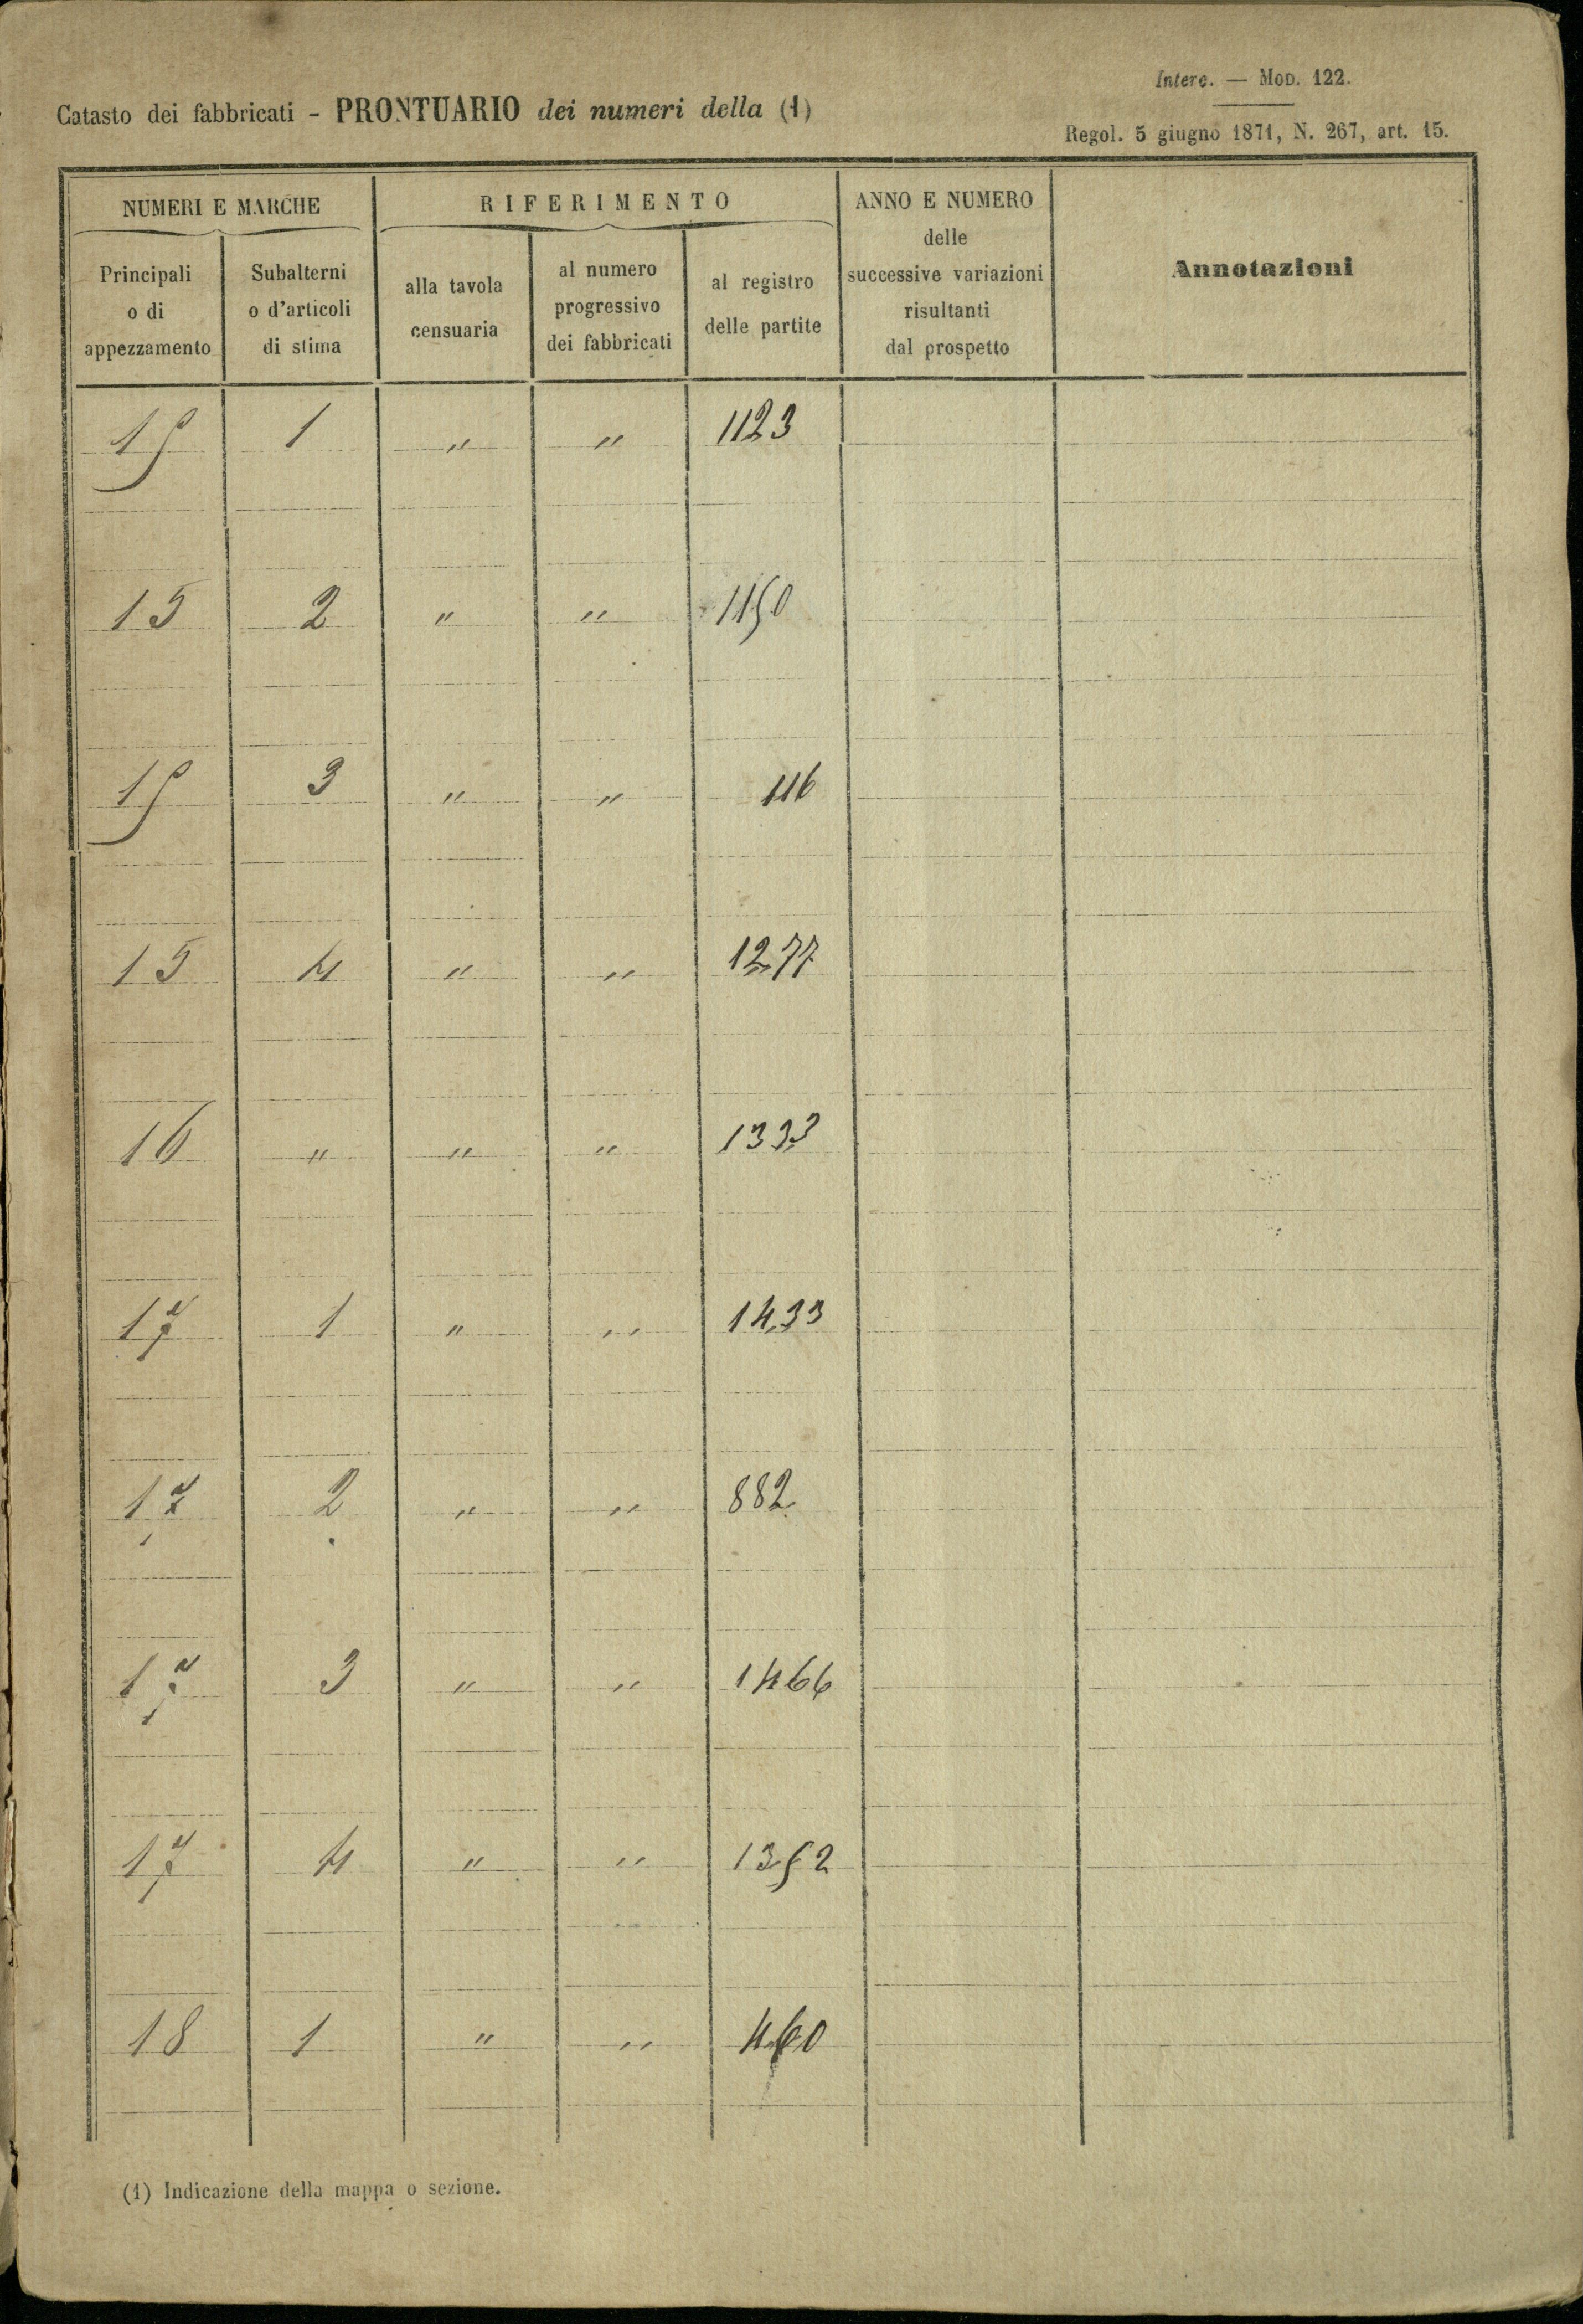 Interc. — Mod. 122.
Catasto dei fabbricati - PRONTUARIO dei numeri della (1)
Regol. 5 giugno 1871, N. 267, art. 15.
NUMERI E MARCHE
RIFERIMENTO
ANNO E NUMERO
delle
successive variazioni
risultanti
dal prospetto
Annotazioni
Principali
o di
appezzamento
Subalterni
o d'articoli
di stima
alla tavola
censuaria
al numero
progressivo
dei fabbricati
al registro
delle partite
15 1 " " 1123
15 2 " " 1150
15 3 " " 116
15 4 " " 1277
16 " " " 1333
17 1 " " 1433
17 2 " " 882
17 3 " " 1466
17 4 " " 1352
18 1 " " 460
(1) Indicazione della mappa o sezione.